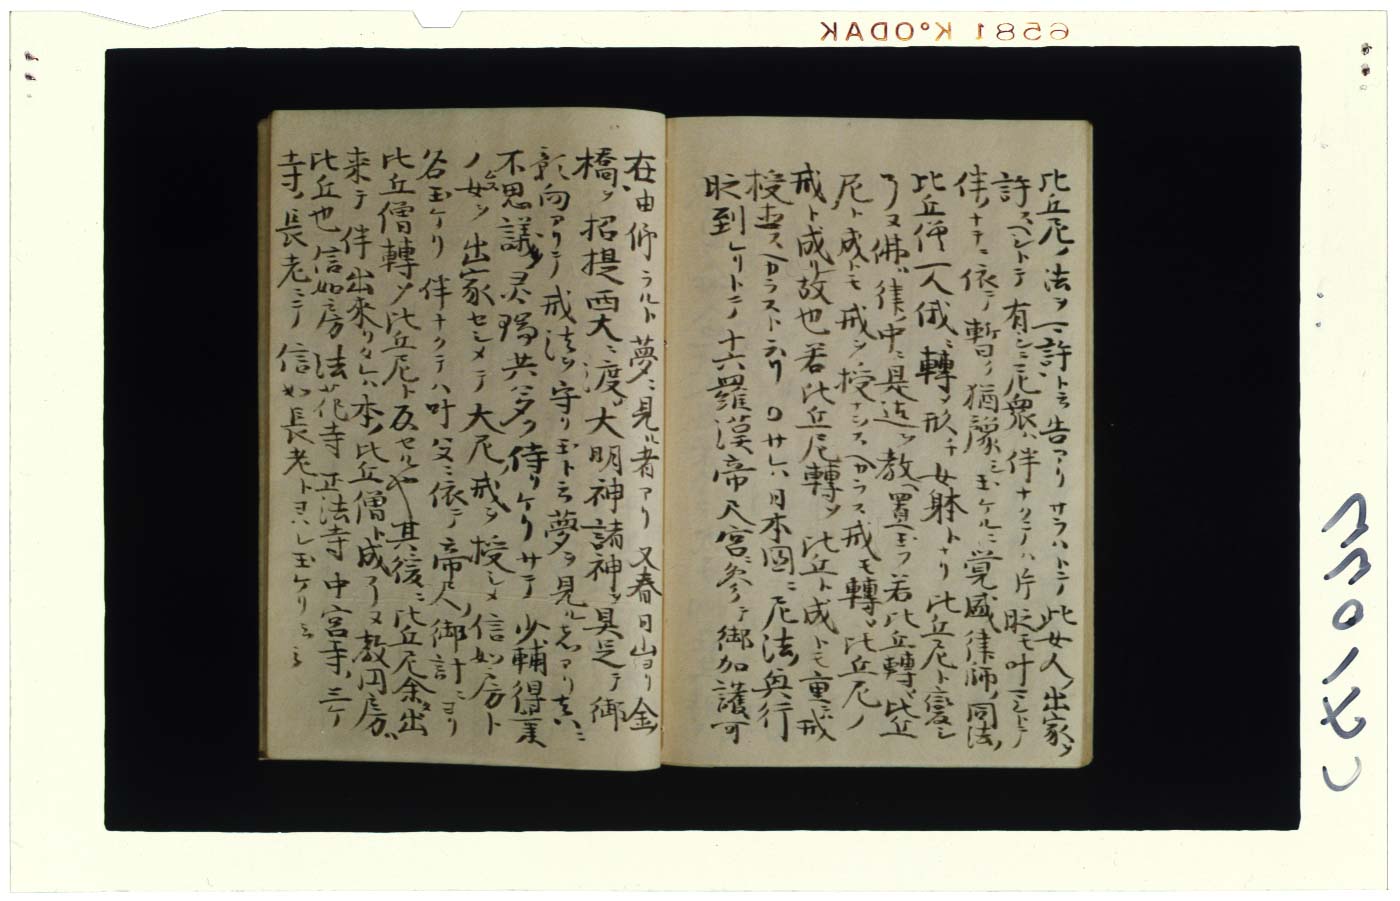 比丘尼ノ法ヲ可許ト云告アリサラハトテ此女人ノ出家ヲ
許スヘシトテ有シニ尼衆ハ伴ナクテハ片時モ叶マシトテ
伴ノナキニ依テ暫ク猶豫シ玉ケルニ覚盛律師ノ同法ノ
比丘僧一人俄ニ轉シ形チ女躰トナリ比丘尼ト變シ
了ヌ佛ハ律ノ中ニ是迄ヲ教ヘ置玉フ若比丘轉シ比丘
尼ト成トモ戒ヲ授ナンスヘカラス戒モ轉シ比丘尼ノ
戒ト成リ故也若比丘尼轉シ比丘ト成トモ重テ戒
授直スヘカラスト云リ サレハ日本國ニ尼法ノ興行
時到レリトテ十六羅漢帝尺宮ニ参テ御加護可
在由仰ラルト夢ニ見ル者アリ又春日山ヨリ金
橋ヲ招提西大ニ渡シ大明神諸神ヲ具足テ御
影向アリテ戒法ヲ守リ玉ト云夢ヲ見ル者アリ真ニ
不思議ノ灵瑞共多ク侍リケリサテ少輔得業
ノ女ヲ出家セシメテ大尼戒ヲ授シメ信如房ト
名玉ケリ伴ナクテハ叶ハ父ニ依テ帝尺ノ御計ニヨリ
比丘僧轉シ比丘尼ト反セルヤ其後ニ比丘尼余タ出
来テ伴出来リタレハ本ノ比丘僧ト成了ヌ教円房
比丘也信如房ハ法花寺正法寺中宮寺三ケ
寺ノ長老ニテ信如長老トヨハレ玉ケリト云々
6581 K°ODAK